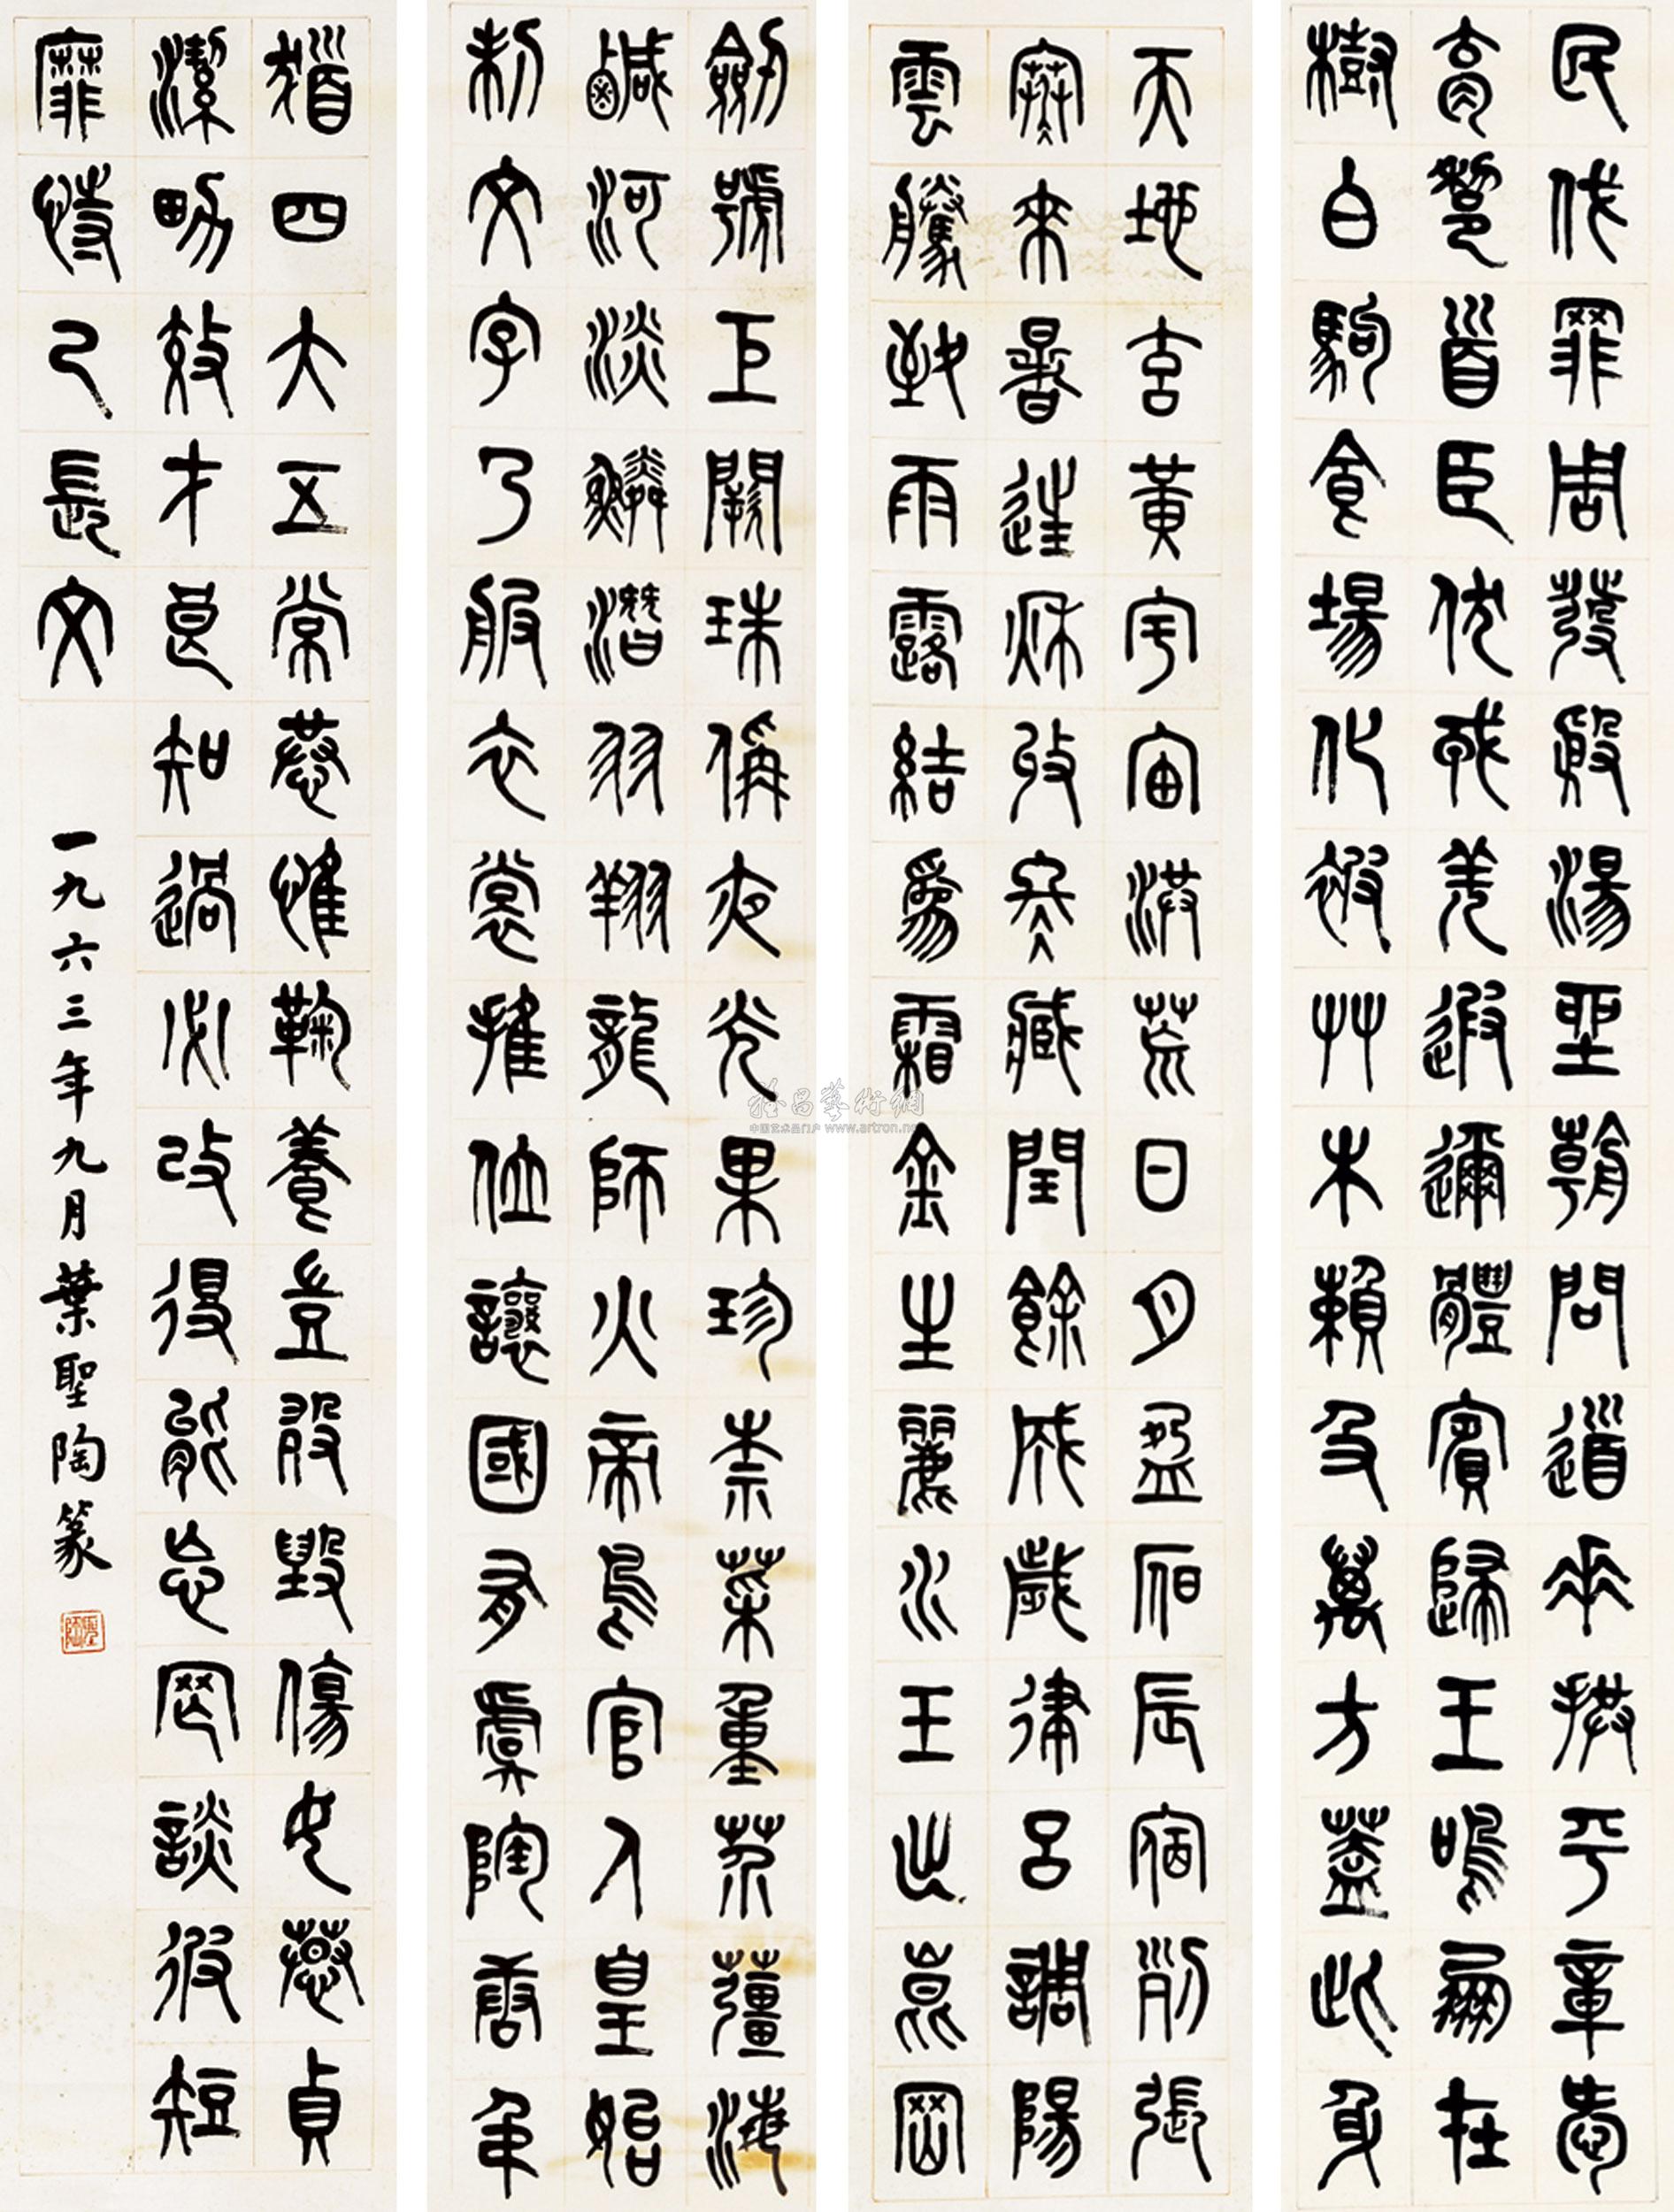 民伐罪周發殷湯坐朝問道垂拱平章愛
育黎首臣伏戎羌遐邇體賓歸王鳴鳳在
樹白駒食場化被草木賴及萬方蓋此身
天地玄黃宇宙洪荒日月盈昃辰宿列張
寒來暑往秋收冬藏閏餘成歲律呂調陽
雲騰致雨露結爲霜金生麗水玉出崑岡
劍號巨闕珠稱夜光果珍柰菜重芥薑海
鹹河淡鱗潛羽翔龍師火帝鳥官人皇始
制文字乃服衣裳推位讓國有虞陶唐弔
髮四大五常恭惟鞠養豈敢毀傷女慕貞
潔男效才良知過必改得能忘罔談彼短
靡恃己長文
一九六三年九月葉聖陶篆
聖陶
雅昌藝術網
中国艺术品门户 www.artron.net